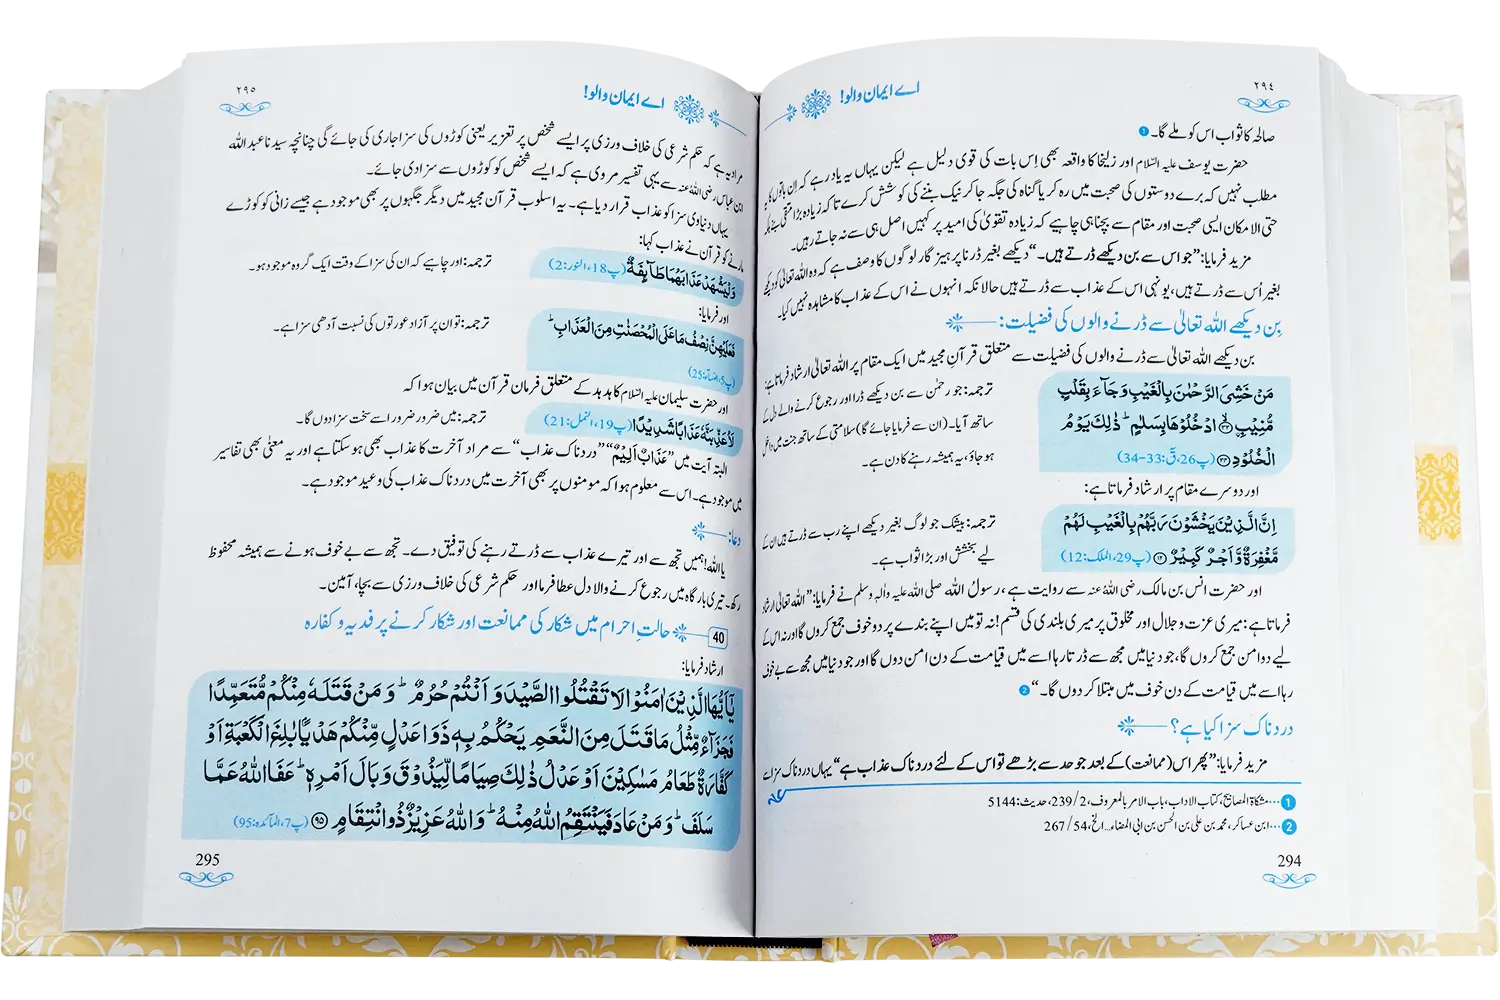 ٢٩٤
اے ایمان والو!
صالحہ کا ثواب اس کو ملے گا۔ 1
حضرت یوسف علیہ السّلام اور زلیخا کا واقعہ بھی اِس بات کی قوی دلیل ہے لیکن یہاں یہ یاد رہے کہ اِن باتوں کا یہ
مطلب نہیں کہ برے دوستوں کی صحبت میں رہ کر یا گناہ کی جگہ جا کر نیک بننے کی کوشش کرے تاکہ زیادہ بڑا متقی بنے بلکہ
حتی الامکان ایسی صحبت اور مقام سے بچنا ہی چاہیے کہ زیادہ تقویٰ کی امید پر کہیں اصل ہی سے نہ جاتے رہیں۔
مزید فرمایا: ”جو اس سے بن دیکھے ڈرتے ہیں۔“ دیکھے بغیر ڈرنا پرہیز گار لوگوں کا وصف ہے کہ وہ اللہ تعالیٰ کو دیکھے
بغیر اُس سے ڈرتے ہیں، یونہی اس کے عذاب سے ڈرتے ہیں حالانکہ انہوں نے اس کے عذاب کا مشاہدہ نہیں کیا۔
بِن دیکھے اللہ تعالیٰ سے ڈرنے والوں کی فضیلت:
بن دیکھے اللہ تعالیٰ سے ڈرنے والوں کی فضیلت سے متعلق قرآنِ مجید میں ایک مقام پر اللہ تعالیٰ ارشاد فرماتا ہے:
مَنْ خَشِیَ الرَّحْمٰنَ بِالْغَیْبِ وَ جَآءَ بِقَلْبٍ
مُّنِیْبِۙ ﴿۳۳﴾ ادْخُلُوْهَا بِسَلٰمٍؕ ذٰلِكَ یَوْمُ
الْخُلُوْدِ ﴿۳۴﴾ (پ26، قٓ:33-34)
ترجمہ: جو رحمٰن سے بن دیکھے ڈرا اور رجوع کرنے والے دل کے
ساتھ آیا۔ (ان سے فرمایا جائے گا) سلامتی کے ساتھ جنت میں داخل
ہوجاؤ، یہ ہمیشہ رہنے کا دن ہے۔
اور دوسرے مقام پر ارشاد فرماتا ہے:
اِنَّ الَّذِیْنَ یَخْشَوْنَ رَبَّهُمْ بِالْغَیْبِ لَهُمْ
مَّغْفِرَةٌ وَّ اَجْرٌ كَبِیْرٌ ﴿۱۲﴾ (پ29، الملک:12)
ترجمہ: بیشک جو لوگ بغیر دیکھے اپنے رب سے ڈرتے ہیں ان کے
لیے بخشش اور بڑا ثواب ہے۔
اور حضرت انس بن مالک رضی اللہ عنہ سے روایت ہے، رسولُ اللہ صلی اللہ علیہ واٰلہٖ وسلم نے فرمایا: ”اللہ تعالیٰ ارشاد
فرماتا ہے: میری عزت و جلال اور مخلوق پر میری بلندی کی قسم! نہ تو میں اپنے بندے پر دو خوف جمع کروں گا اور نہ اس کے
لیے دو امن جمع کروں گا، جو دنیا میں مجھ سے ڈرتا رہا اسے میں قیامت کے دن امن دوں گا اور جو دنیا میں مجھ سے بے خوف
رہا اسے میں قیامت کے دن خوف میں مبتلا کر دوں گا۔“ 2
دردناک سزا کیا ہے؟
مزید فرمایا: ”پھر اس (ممانعت) کے بعد جو حد سے بڑھے تو اس کے لئے دردناک عذاب ہے“ یہاں دردناک سزا سے
1 ...مشکاۃ المصابیح، کتاب الاداب، باب الامر بالمعروف، 2/239، حدیث: 5144
2 ...ابن عساکر، محمد بن علی بن الحسن بن ابی المضاء... الخ، 54/267
294
٢٩٥
اے ایمان والو!
مراد یہ ہے کہ حکم شرعی کی خلاف ورزی پر ایسے شخص پر تعزیر یعنی کوڑوں کی سزا جاری کی جائے گی چنانچہ سیدنا عبد اللہ
ابن عباس رضی اللہ عنہ سے یہی تفسیر مروی ہے کہ ایسے شخص کو کوڑوں سے سزا دی جائے۔
یہاں دنیاوی سزا کو عذاب قرار دیا ہے۔ یہ اسلوب قرآن مجید میں دیگر جگہوں پر بھی موجود ہے جیسے زانی کو کوڑے
مارنے کو قرآن نے عذاب کہا:
وَ لْیَشْهَدْ عَذَابَهُمَا طَآىٕفَةٌ (پ18، النور:2)
ترجمہ: اور چاہیے کہ ان کی سزا کے وقت ایک گروہ موجود ہو۔
اور فرمایا:
فَعَلَیْهِنَّ نِصْفُ مَا عَلَى الْمُحْصَنٰتِ مِنَ الْعَذَابِؕ
(پ5، النساء:25)
ترجمہ: تو ان پر آزاد عورتوں کی نسبت آدھی سزا ہے۔
اور حضرت سلیمان علیہ السّلام کا ہدہد کے متعلق فرمان قرآن میں بیان ہوا کہ
لَاُعَذِّبَنَّهٗ عَذَابًا شَدِیْدًا (پ19، النمل:21)
ترجمہ: میں ضرور ضرور اسے سخت سزا دوں گا۔
البتہ آیت میں ”عَذَابٌ اَلِیْمٌ“ ”دردناک عذاب“ سے مراد آخرت کا عذاب بھی ہوسکتا ہے اور یہ معنی بھی تفاسیر
میں موجود ہے۔ اس سے معلوم ہوا کہ مومنوں پر بھی آخرت میں دردناک عذاب کی وعید موجود ہے۔
دعا:
یا اللہ! ہمیں تجھ سے اور تیرے عذاب سے ڈرتے رہنے کی توفیق دے۔ تجھ سے بے خوف ہونے سے ہمیشہ محفوظ
رکھ۔ تیری بارگاہ میں رجوع کرنے والا دل عطا فرما اور حکم شرعی کی خلاف ورزی سے بچا، آمین۔
40 حالتِ احرام میں شکار کی ممانعت اور شکار کرنے پر فدیہ و کفارہ
ارشاد فرمایا:
یٰۤاَیُّهَا الَّذِیْنَ اٰمَنُوْا لَا تَقْتُلُوا الصَّیْدَ وَ اَنْتُمْ حُرُمٌؕ وَ مَنْ قَتَلَهٗ مِنْكُمْ مُّتَعَمِّدًا
فَجَزَآءٌ مِّثْلُ مَا قَتَلَ مِنَ النَّعَمِ یَحْكُمُ بِهٖ ذَوَا عَدْلٍ مِّنْكُمْ هَدْیًۢا بٰلِغَ الْكَعْبَةِ اَوْ
كَفَّارَةٌ طَعَامُ مَسٰكِیْنَ اَوْ عَدْلُ ذٰلِكَ صِیَامًا لِّیَذُوْقَ وَبَالَ اَمْرِهٖؕ عَفَا اللّٰهُ عَمَّا
سَلَفَؕ وَ مَنْ عَادَ فَیَنْتَقِمُ اللّٰهُ مِنْهُؕ وَ اللّٰهُ عَزِیْزٌ ذُو انْتِقَامٍ ﴿۹۵﴾ (پ7، المآئدہ:95)
295